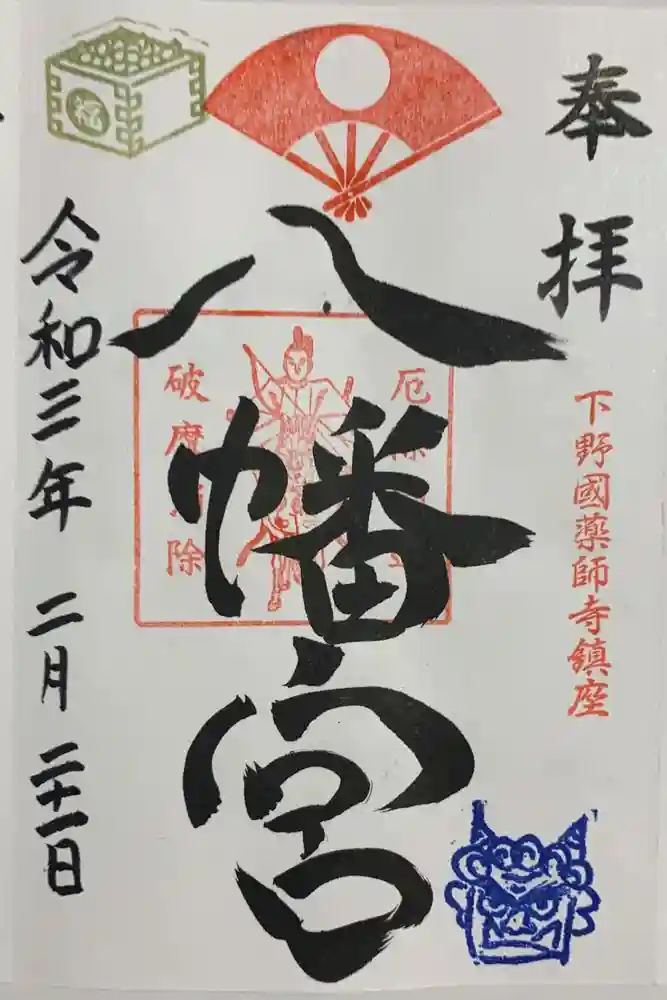 奉拝
下野國薬師寺鎮座
八幡宮
厄
破魔
除
令和三年 二月 二十一日
福